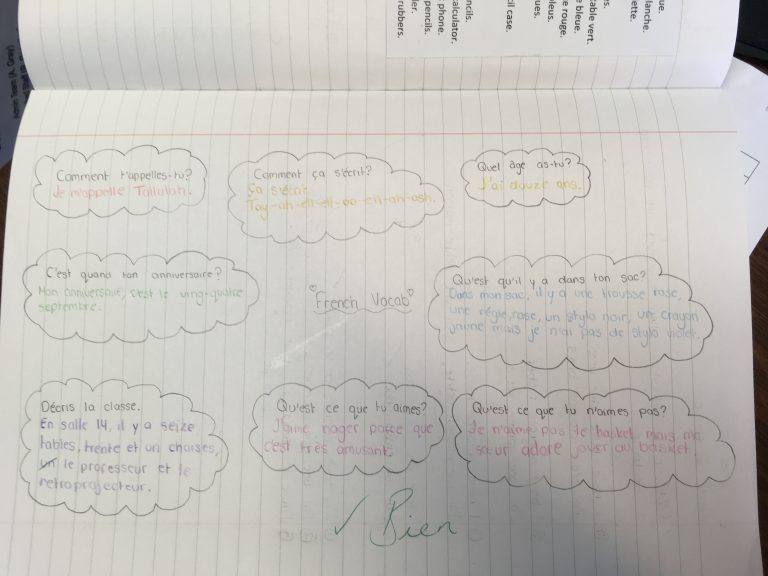 ue.
lanche.
ette.
s.
able vert.
e bleue.
e rouge.
leus.
ues.
cil case.
ncils.
calculator.
phone.
pencils.
ler.
rubbers.
Comment t'appelles-tu?
Je m'appelle Tallulah.
Comment ça s'écrit?
Ça s'écrit
Tay-ah-ell-ell-oo-ell-ah-ash.
Quel âge as-tu?
J'ai douze ans.
C'est quand ton anniversaire?
Mon anniversaire, c'est le vingt-quatre
septembre.
French Vocab
Qu'est qu'il y a dans ton sac?
Dans mon sac, il y a une trousse rose,
une règle rose, un stylo noir, un crayon
jaune mais je n'ai pas de stylo violet.
Décris la classe.
En salle 14, il y a seize
tables, trente et un chaises,
un le professeur et le
retroprojecteur.
Qu'est ce que tu aimes?
J'aime nager parce que
c'est très amusant.
Qu'est ce que tu n'aimes pas?
Je n'aime pas le basket mais ma
sœur adore jouer au basket.
Bien